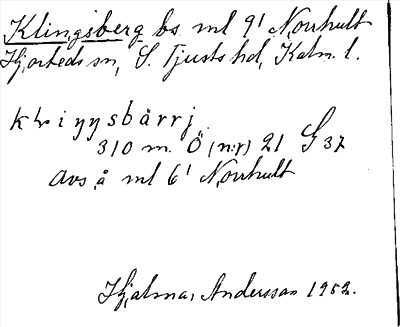 Klingsberg bs. ml 9' Norrhult
Hjorteds sn, S. Tjusts hd, Kalm. l.
klviŋsbärrj
310 m. Ö (nr) 21 G 37
avs. å ml 6' Norrhult
Hjalmar Andersson 1952.